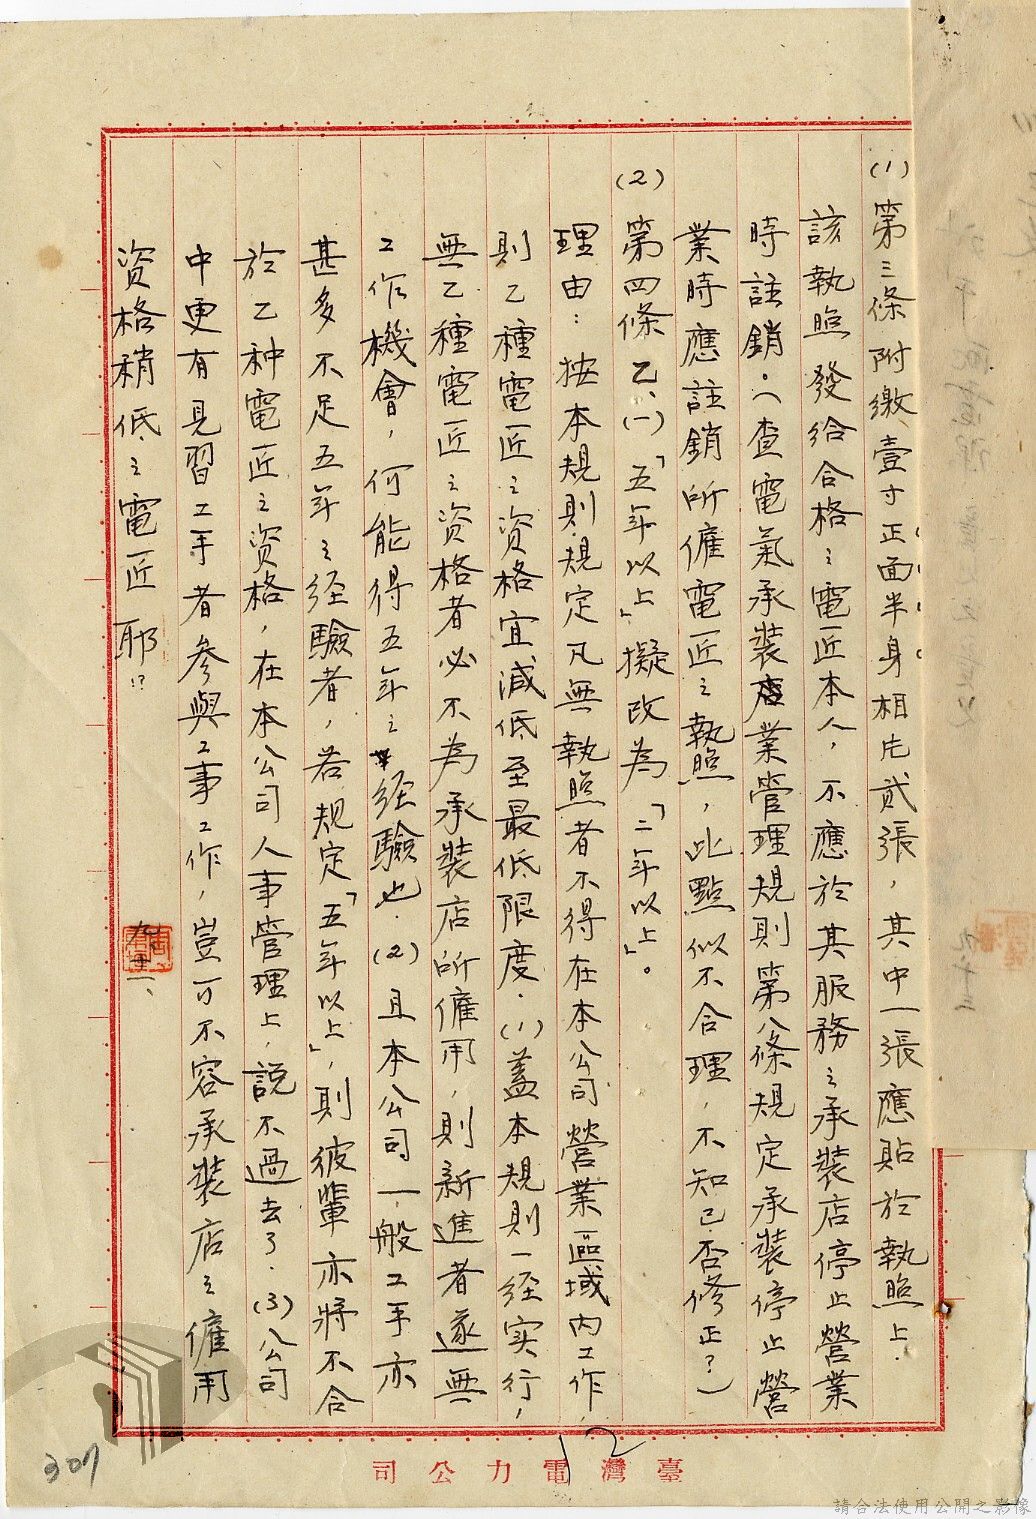 (1) 第三條附繳壹寸正面半身相片貳張，其中一張應貼於執照上．
該執照發給合格之電匠本人，不應於其服務之承裝店停止營業
時註銷．（查電氣承裝業管理規則第八條規定承裝停止營
業時應註銷所僱電匠之執照，此點似不合理，不知已否修正？）
(2) 第四條乙、(一)「五年以上」擬改為「二年以上」。
理由：按本規則規定凡無執照者不得在本公司營業區域內工作，
則乙種電匠之資格宜減低至最低限度．(1)蓋本規則一经实行，
無乙種電匠之資格者必不為承裝店所僱用，則新進者遂無
工作機會，何能得五年之经驗也．(2)且本公司一般工手亦
甚多不足五年之经驗者，若规定「五年以上」，則彼輩亦將不合
於乙种電匠之資格，在本公司人事管理上，說不過去了．(3)公司
中更有見習工手者參與工事工作，豈可不容承裝店之僱用
資格稍低之電匠耶!?
九、十一、
臺灣電力公司
12
307
請合法使用公開之影像